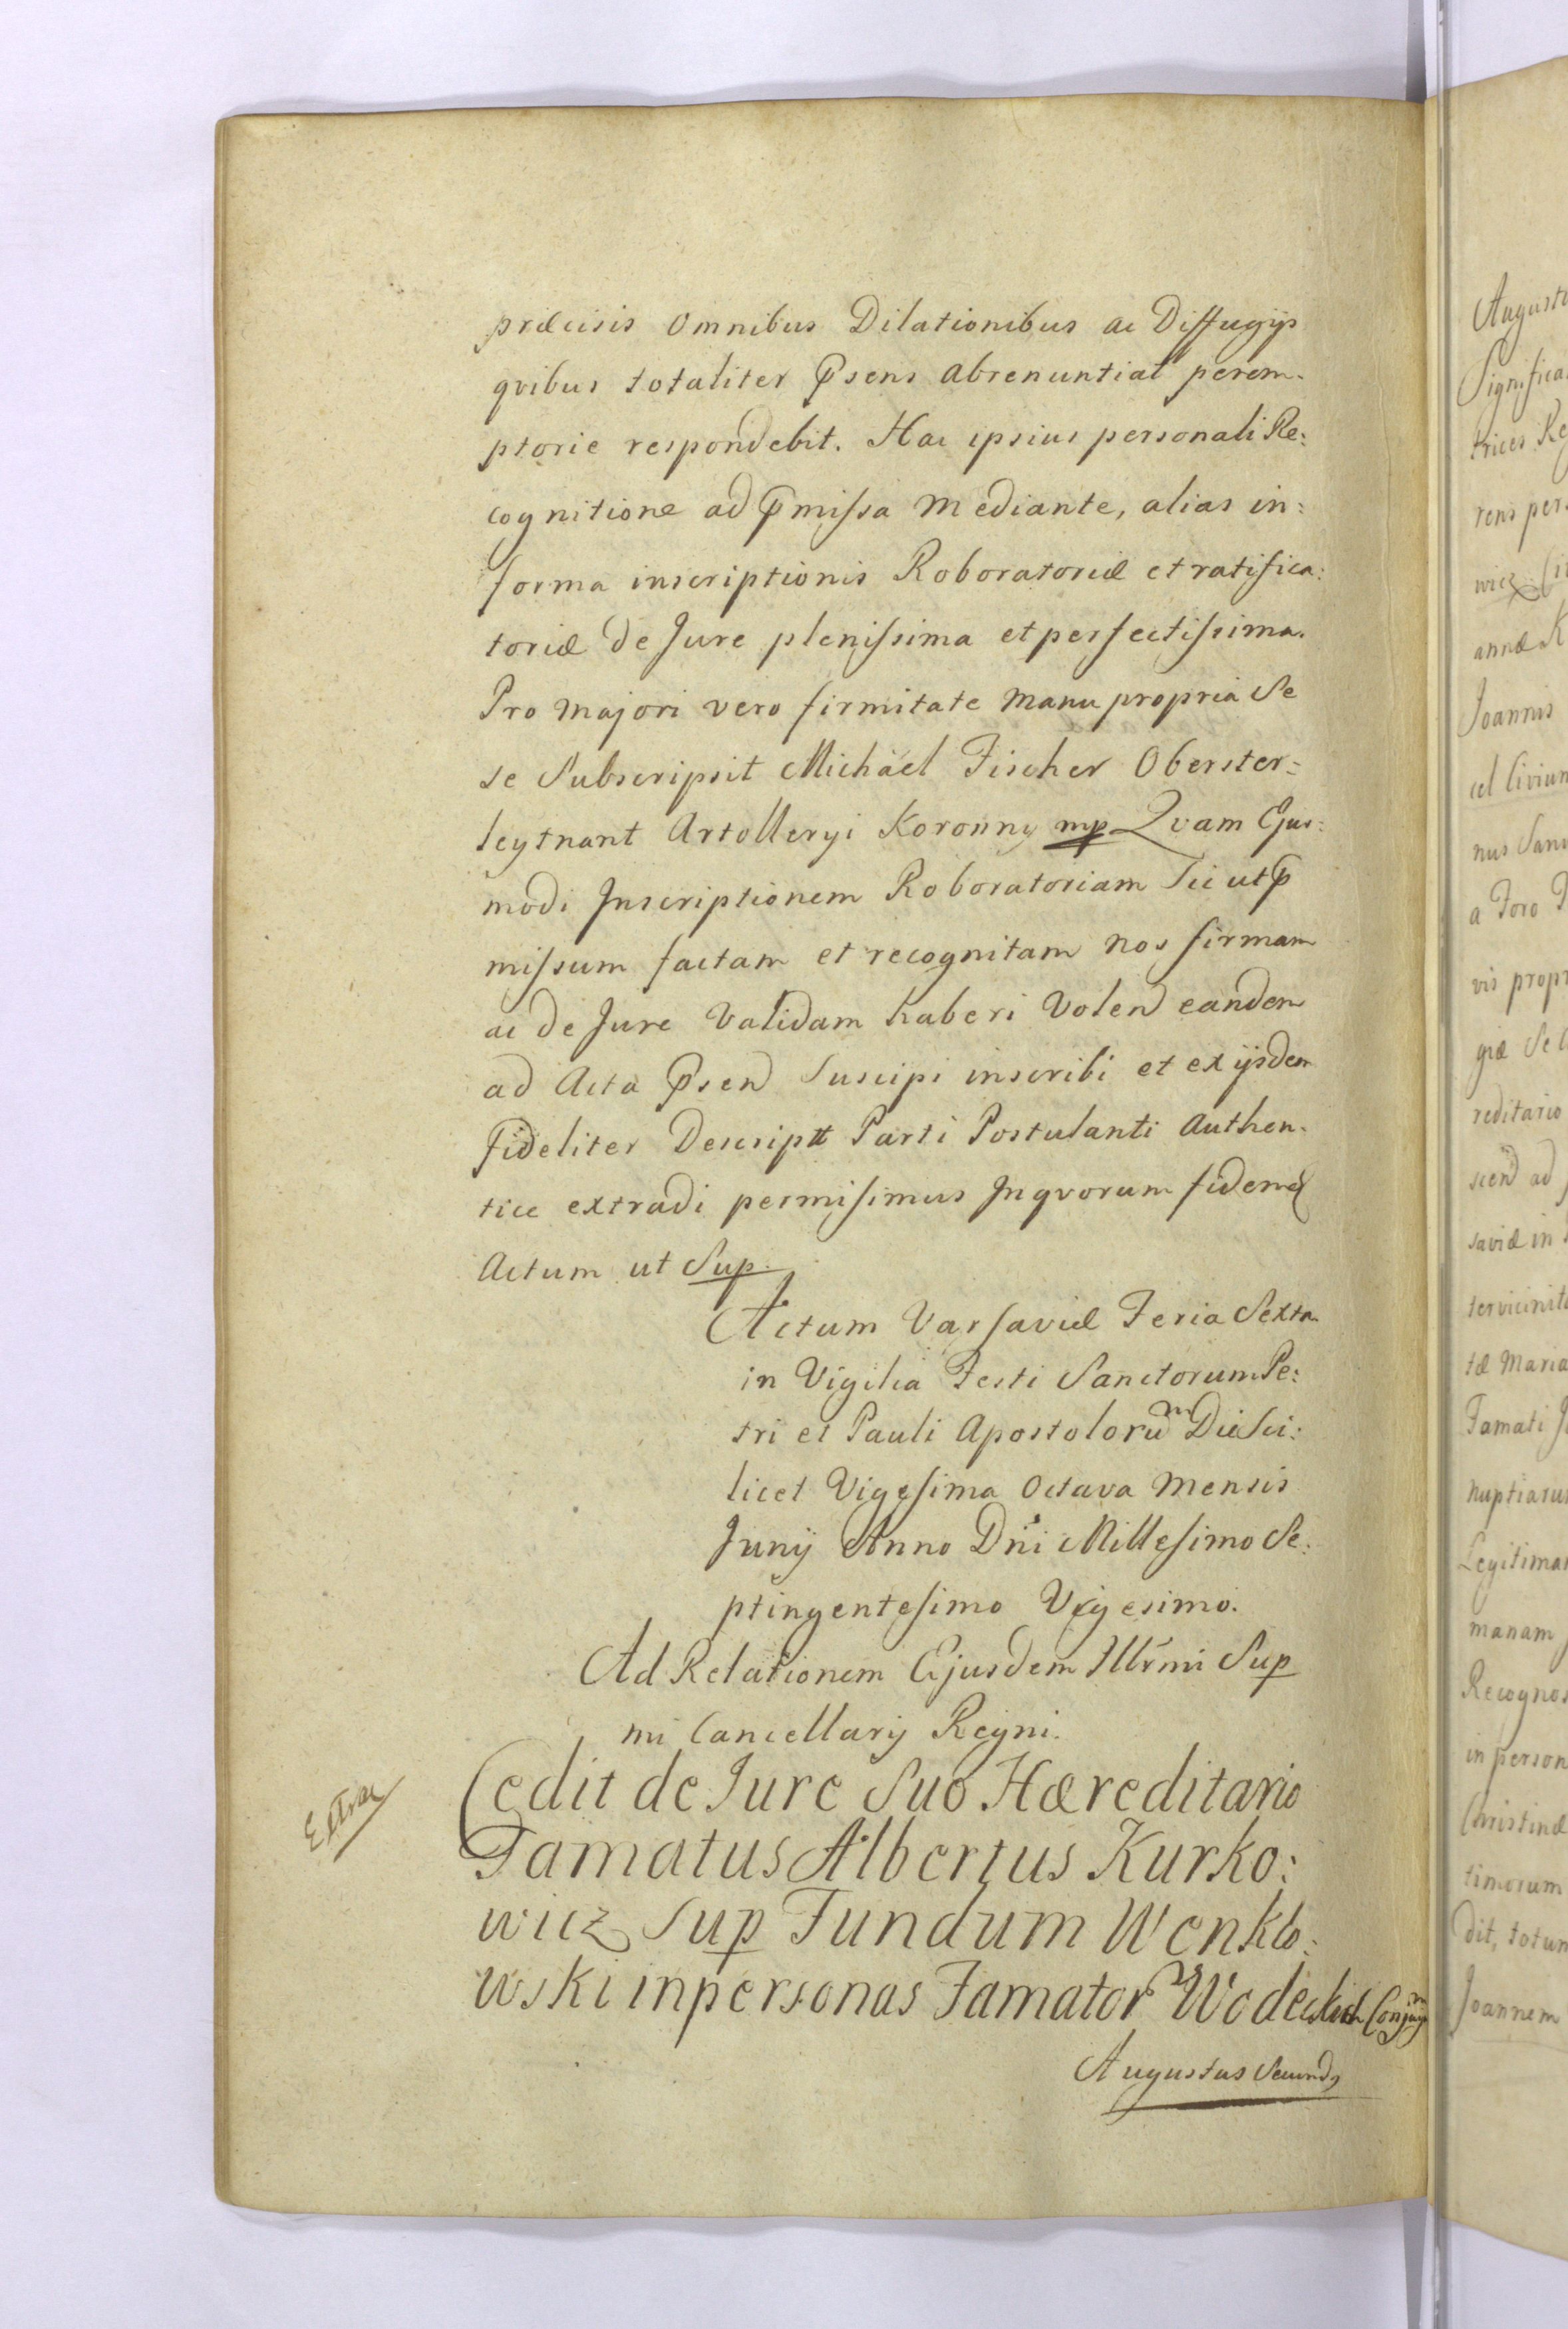 præcisis Omnibus Dilationibus ac Diffugijs
qvibus totaliter P̄sens abrenuntiat perem-
ptorie respondebit. Hac ipsius personali Re:
cognitione ad p̄missa Mediante, alias in:
forma inscriptionis Roboratoriæ et ratifica:
toriæ de Jure plenissima et perfectissima.
Pro Majori vero firmitate Manu propria Se
se Subscripsit Michäel Fischer Oberster-
leytnant Artolleryi Koronny mp Qvam Ejus:
modi Inscriptionem Roboratoriam Sic ut p̄
missum factam et recognitam nos firmam
ac de Jure Validam haberi Volend eandem
ad Acta P̄send Suscipi inscribi et ex ijsdem
fideliter Descriptt Parti Postulanti Authen-
tice extradi permisimus In qvorum fidem
Actum ut Sup.
Actum Varsaviæ Feria Sexta
in Vigilia Festi Sanctorum Pe:
tri et Pauli Apostolorum Die Sci:
licet Vigesima Octava Mensis
Junij Anno Dñi Millesimo Se:
ptingentesimo Vigesimo.
Ad Relationem Ejusdem Illr̄mi Sup
mi Cancellarij Regni.
Extrac
Cedit de Jure Suo Hæreditario
Famatus Albertus Kurko:
wicz Sup Fundum Wenklo:
wski in personas Famator Wodeckich Conjugum
Augustus Secundus
Augustu
Significa
trices Re
rens pers
wicz Ci
annæ K
Joannis
cel Civium
nus Sanu
a Foro
vis propr
giæ Se
reditario
scend ad
saviæ in
tervicinita
tæ Maria
Famati J
nuptiarum
Legitimar
manam
Recognos
in person
Christinæ
timorum
dit, totum
Joannem